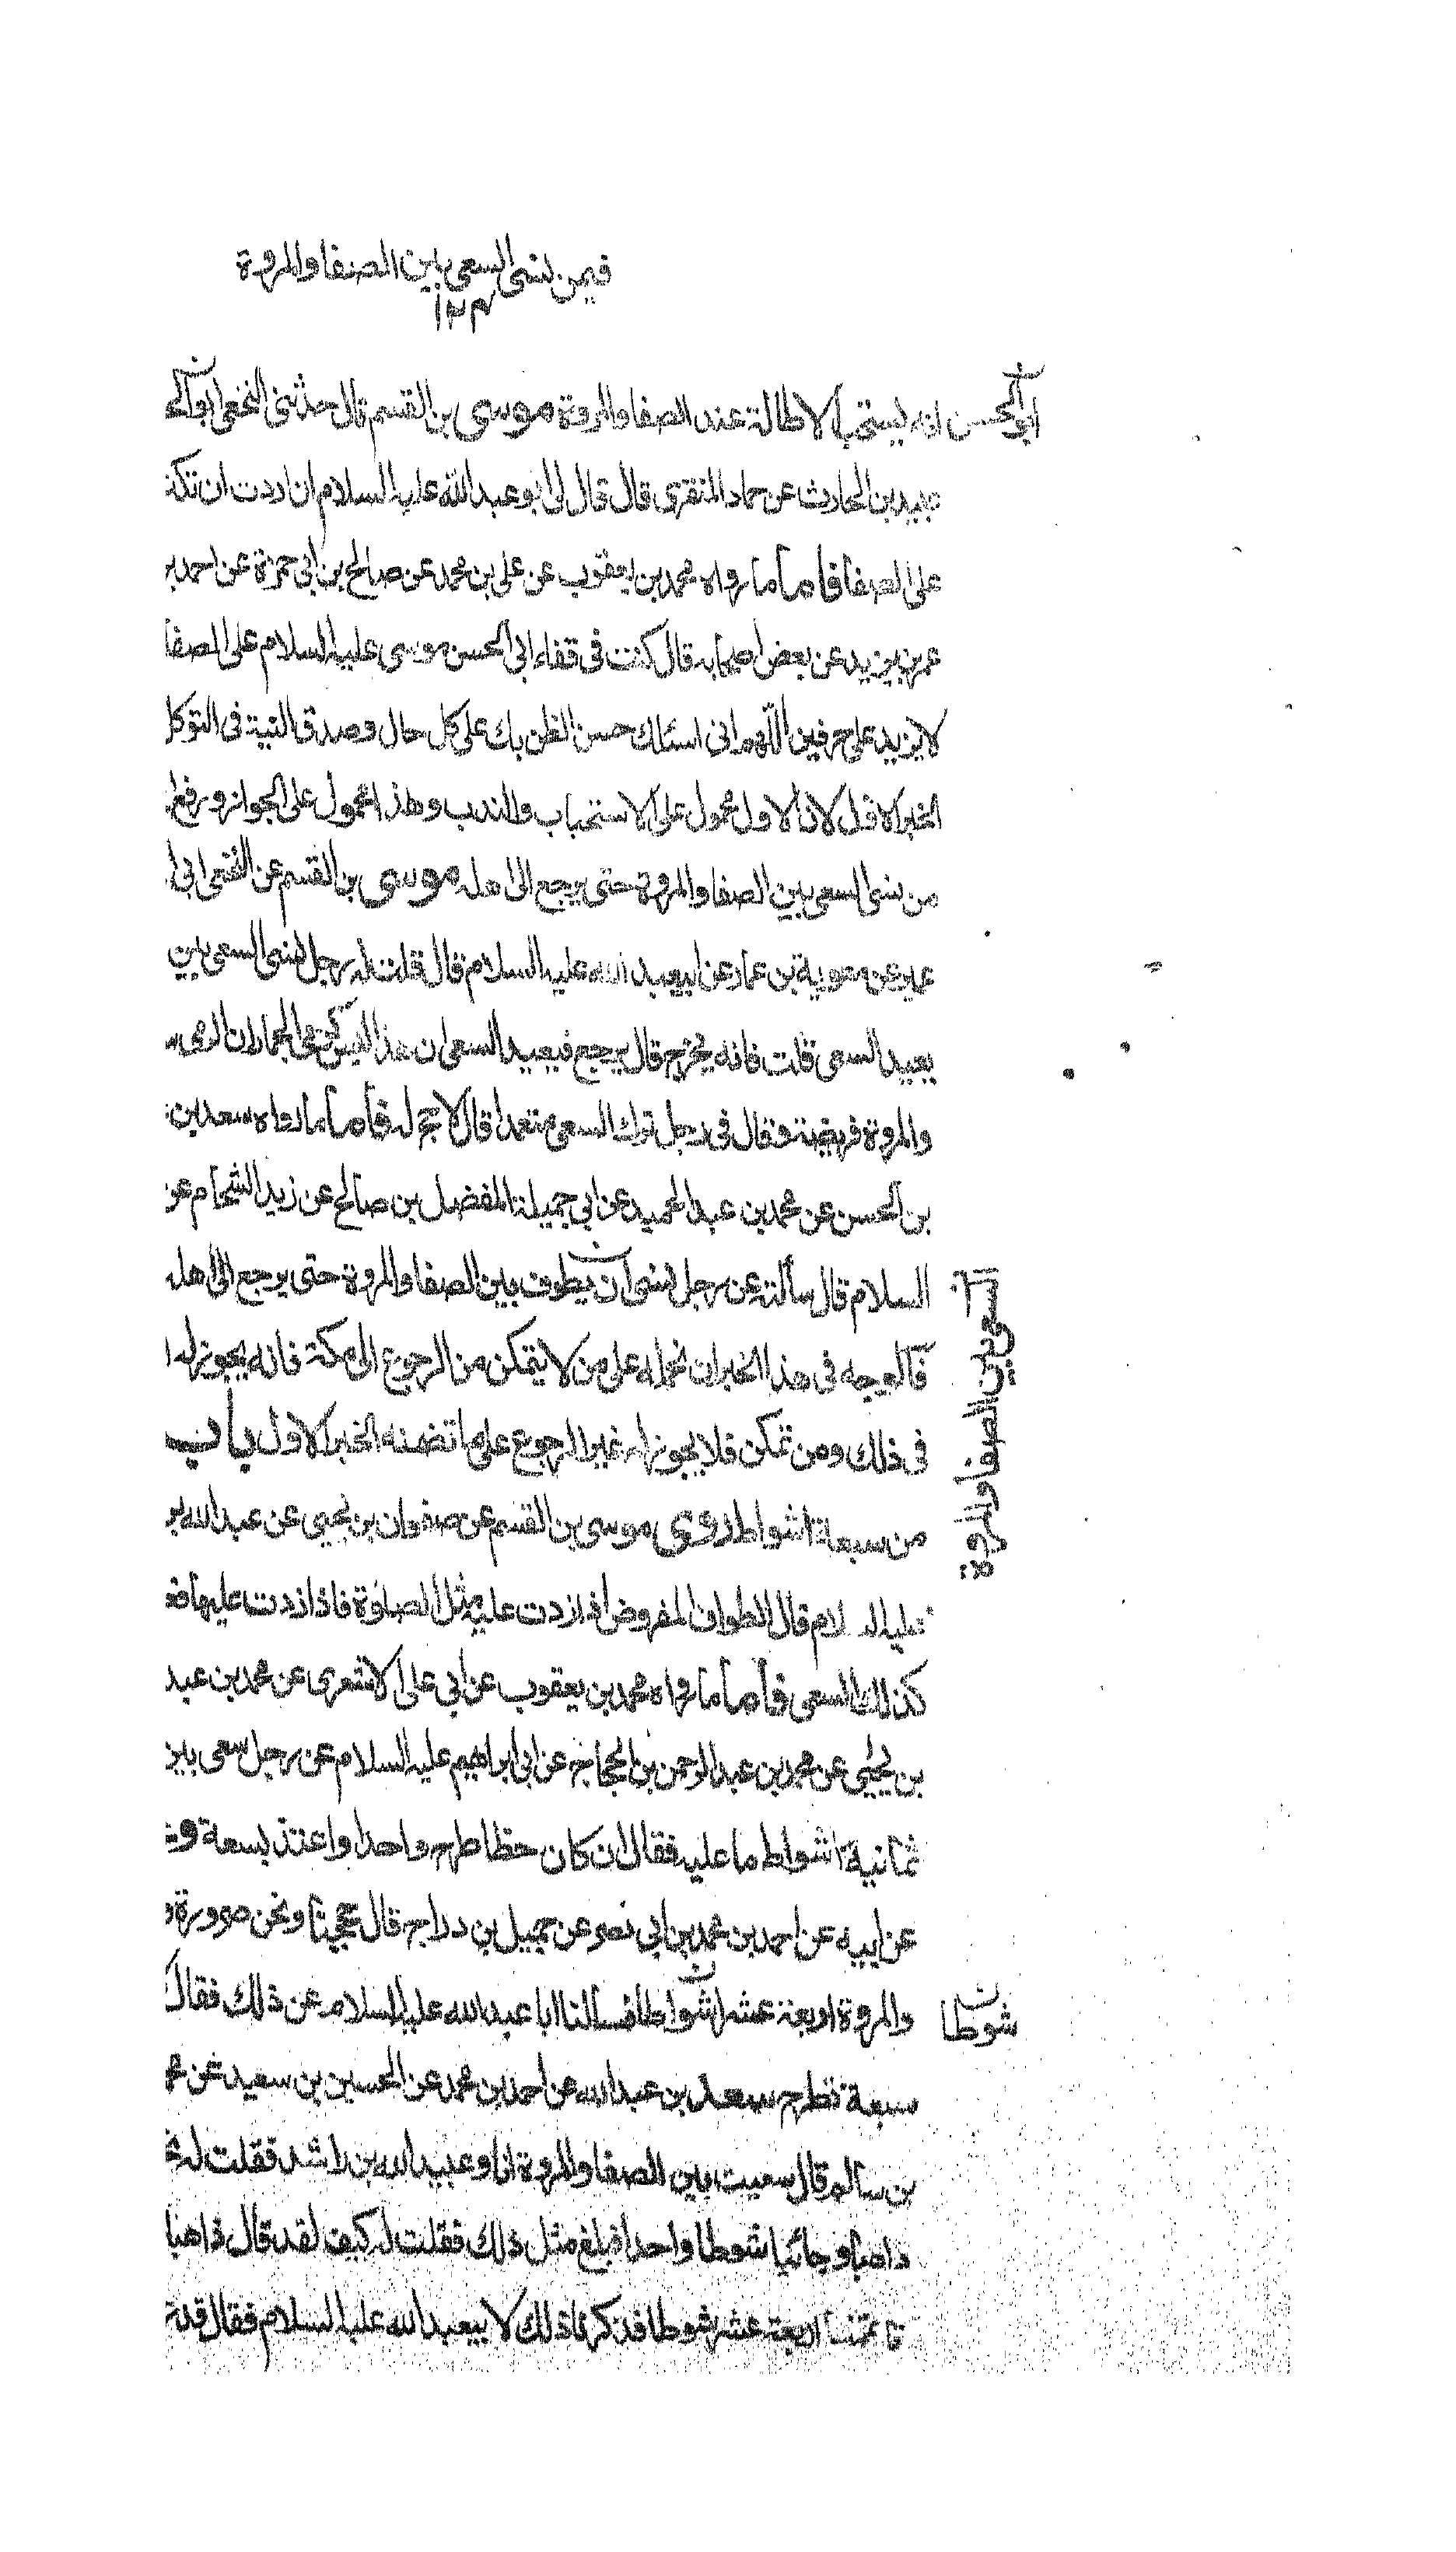 فيمن نسى السعى بين الصفا والمروة
١٢٣
ابو الحسن
انه يستحب الاطالة عند الصفا والمروة موسى بن القسم قال حدثنى النخعى ابو الح
عبيد بن الحارث عن حماد المنقرى قال قال لى ابو عبد الله عليه السلام ان اردت ان تكث
على الصفا فأما ما رواه محمد بن يعقوب عن على بن محمد عن صالح بن ابى حمزة عن احمد بر
عمر بن يزيد عن بعض اصحابه قال كنت فى قفاء ابى الحسن موسى عليه السلام على الصفا
لا يزيد على حرفين اللّهم انى اسئلك حسن الظن بك على كل حال وصدق النية فى التوكل
الخبر الاول لان الاول محمول على الاستحباب والندب وهذا محمول على الجواز ورفع ا
من نسى السعى بين الصفا والمروة حتى يرجع الى اهله موسى بن القسم عن النخعى ابى ا
عمير عن معوية بن عمار عن ابيعبد الله عليه السلام قال قلت له رجل نسى السعى بين
يعيد السعى قلت فانه يخرج قال يرجع فيعيد السعى ان هذا ليس كرمى الجمار ان الرمى س
والمروة فريضة وقال فى رجل ترك السعى متعمدا قال لا حج له فأما ما رواه سعد بن
بن الحسن عن محمد بن عبد الحميد عن ابى جميلة المفضل بن صالح عن زيد الشحام عن
السلام قال سألته عن رجل نسى ان يطوف بين الصفا والمروة حتى يرجع الى اهله
السعى بين الصفا والمروة
فالوجه فى هذا الخبر ان نحمله على من لا يتمكن من الرجوع الى مكة فانه يجوز له ا
فى ذلك ومن تمكن فلا يجوز له غير الرجوع على ما تضمنه الخبر الاول باب
من سبعة اشواط روى موسى بن القسم عن صفوان بن يحيى عن عبد الله بر
عليه السلام قال الطواف المفروض اذا زدت عليه مثل الصلوة فاذا زدت عليها فع
كذلك السعى فأما ما رواه محمد بن يعقوب عن ابى على الاشعرى عن محمد بن عبد
بن يحيى عن عبد الرحمن بن الحجاج عن ابى ابراهيم عليه السلام عن رجل سعى بين
ثمانية اشواط ما عليه فقال ان كان خطا طرح واحدا واعتد بسبعة و
عن ابيه عن احمد بن محمد بن ابى نصر عن جميل بن دراج قال حججنا ونحن صرورة و
والمروة اربعة عشر اشواطا فسألنا ابا عبد الله عليه السلام عن ذلك فقال
شوطا
سبعة تطرح سعد بن عبد الله عن احمد بن محمد عن الحسين بن سعيد عن مح
بن سالم قال سعيت بين الصفا والمروة انا وعبيد الله بن راشد فقلت له تح
ذاهبا وجائيا شوطا واحدا فبلغ مثل ذلك فقلت له كيف تعد قال ذاهبا
فاتممنا اربعة عشر شوطا فذكرنا ذلك لابيعبد الله عليه السلام فقال قد